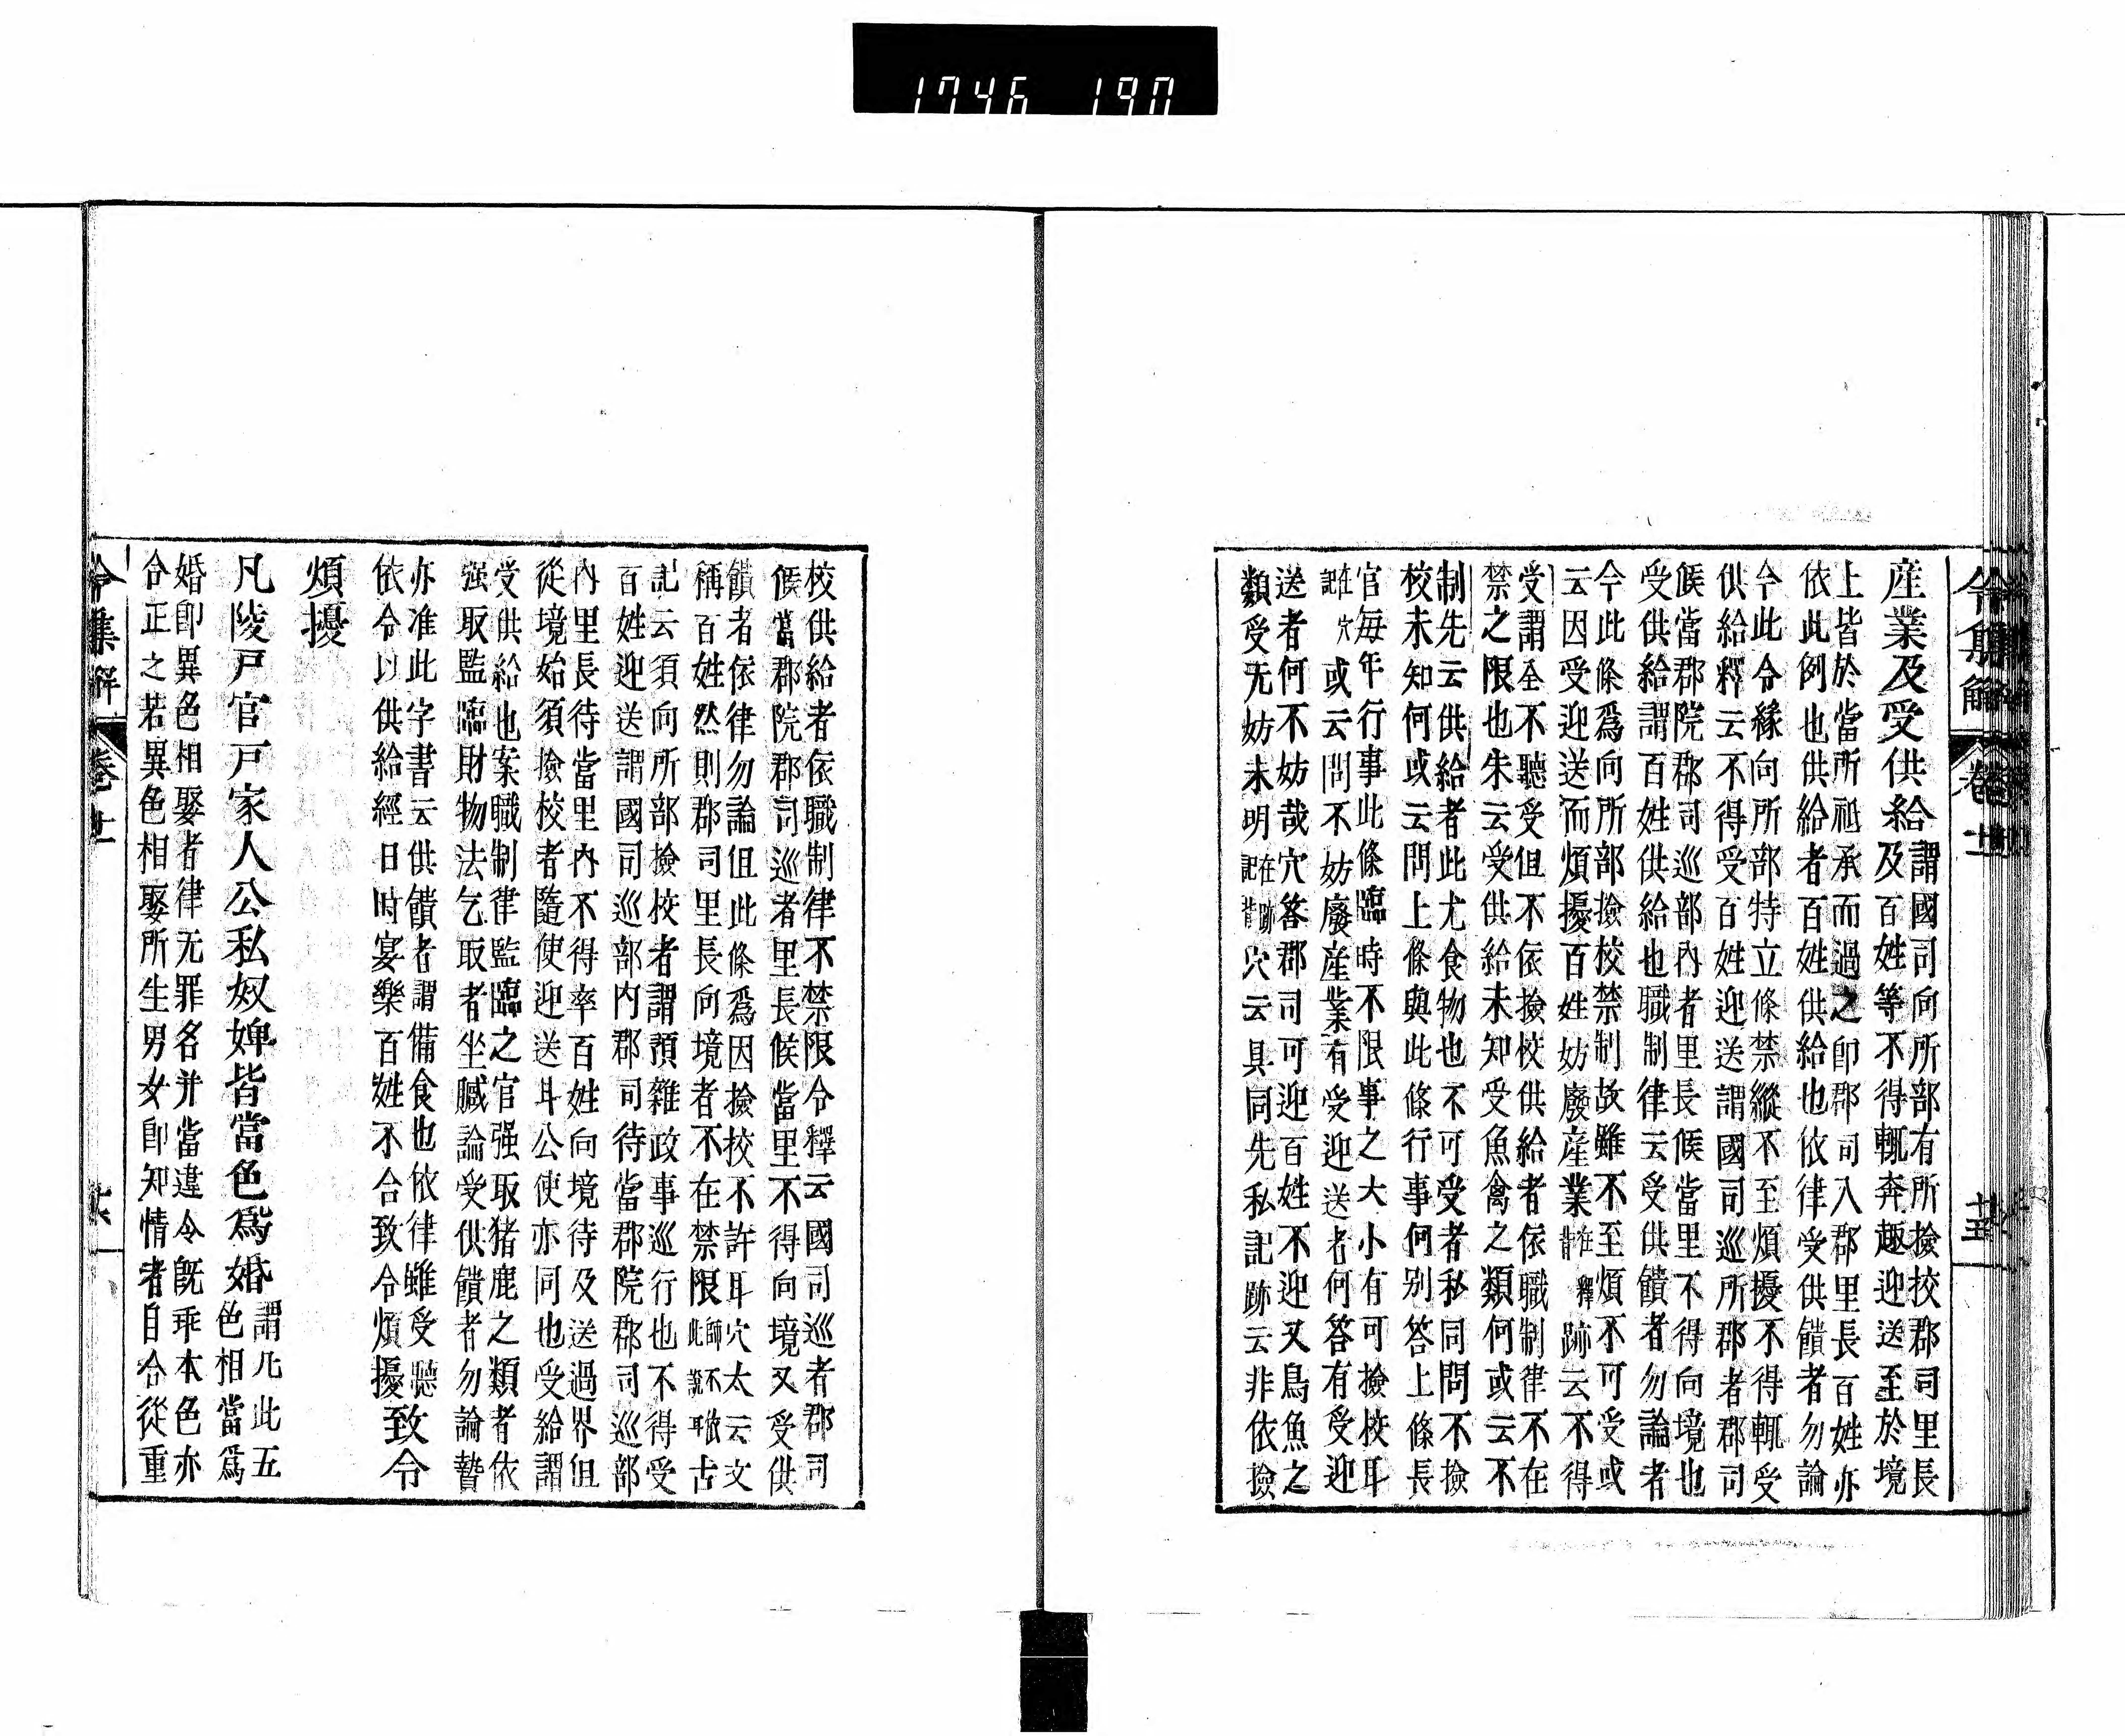 1746 190
令集解 卷十一 廿五
産業及受供給及百姓等不得輙奔趣迎送至於境
謂國司向所部有所撿挍郡司里長
上皆於當所祗承而過之卽郡司入郡里長百姓亦
依此例也供給者百姓供給也依律受供饋者勿論
今此令緣向所部特立條禁縱不至煩擾不得輙受
供給釋云不得受百姓迎送謂國司巡所郡者郡司
候當郡院郡司巡部內者里長候當里不得向境也
受供給謂百姓供給也職制律云受供饋者勿論者
今此條爲向所部撿校禁制故雖不至煩不可受或
云因受迎送而煩擾百姓妨廢産業在釋背跡云不得
受謂全不聽受但不依撿校供給者依職制律不在
禁之限也朱云受供給未知受魚禽之類何或云不
制先云供給者此尤食物也不可受者私同問不撿
校未知何或云問上條與此條行事何别答上條長
官毎年行事此條臨時不限事之大小有可撿校耳
在穴記或云問不妨廢産業有受迎送者何答有受迎
送者何不妨哉穴答郡司可迎百姓不迎又鳥魚之
類受无妨未明在跡記背穴云具同先私記跡云非依撿
校供給者依職制律不禁限令釋云國司巡者郡司
候當郡院郡司巡者里長候當里不得向境又受供
饋者依律勿論但此條爲因撿校不許耳穴太云文
稱百姓然則郡司里長向境者不在禁限師不依此說耳古
記云須向所部撿校者謂預雜政事巡行也不得受
百姓迎送謂國司巡部内郡司待當郡院郡司巡部
內里長待當里內不得率百姓向境待及送過界但
從境始須撿校者隨使迎送耳公使亦同也受給謂
受供給也案職制律監臨之官强取猪鹿之類者依
强取監臨財物法乞取者坐贓論受供饋者勿論贊
亦准此字書云供饋者謂備食也依律雖受聽
依令以供給經日時宴樂百姓不合致令煩擾
致令
煩擾
凡陵戸官戸家人公私奴婢皆當色爲婚
謂凡此五
色相當爲
婚卽異色相娶者律无罪名并當違令旣乖本色亦
合正之若異色相娶所生男女卽知情者自合從重
令集解 卷十一